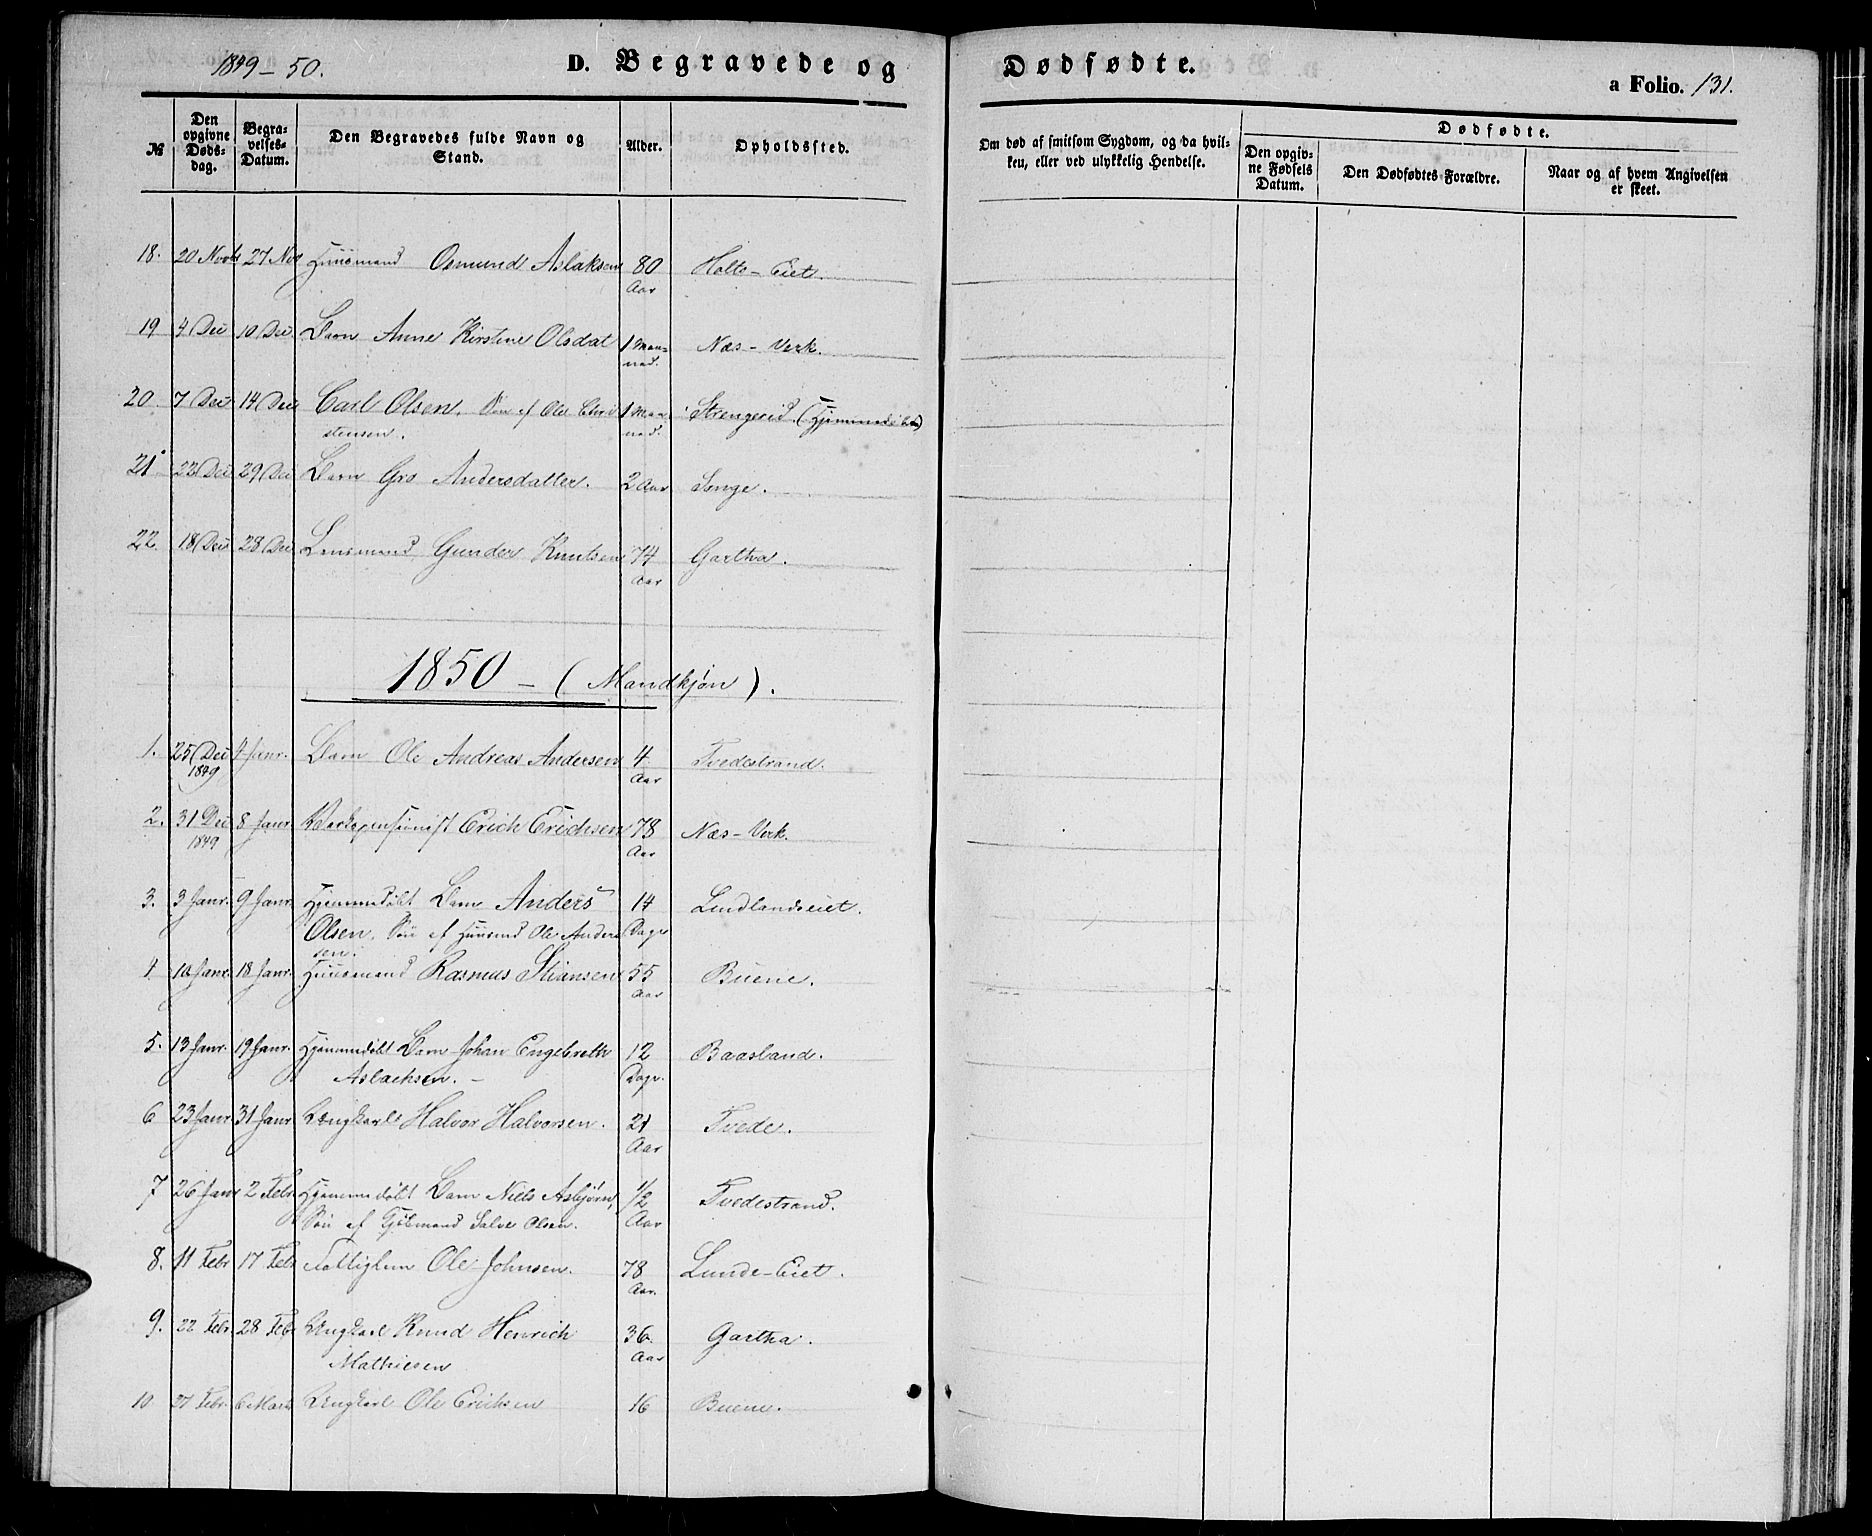 1849 - 50.
D. Begravede og Dødfødte.
a Folio. 131.
№
Den opgivne Døds-dag.
Begra-velses-Datum.
Den Begravedes fulde Navn og Stand.
Alder.
Opholdssted.
Om død af smitsom Sygdom, og da hvil-ken, eller ved ulykkelig Hendelse.
Dødfødte.
Den opgiv-ne Fødsels Datum.
Den Dødfødtes Forældre.
Naar og af hvem Angivelsen er skeet.
18. 20 Novbr 27 Nov Huusmand Osmund Aslaksen 80 Holte-Eiet.
Aar
19 4 Dec 10 Dec. Barn Anne Kirstine Olsdat 1 Maa- Næs-Verk.
ned.
20 7 Dec 14 Dec Carl Olsen. Søn af Ole Chri 1 Maa Strengereid. (Hjemmedøbt)
stensen. ned.
21 22 Dec 29 Dec Barn Gro Andersdatter. 2 Aar Songe.
22. 18 Dec 28 Dec Lensmand Gunder Knutsen 74 Gartha.
Aar
1850 - (Mandkjøn).
1. 25 Dec 4 Janr. Barn Ole Andreas Andersen 4 Tvedestrand.
1849 Aar
2. 31 Dec 8 Janr. Værkspensionist Erich Erichsen 78 Næs-Verk.
1849 Aar
3. 3 Janr. 9 Janr. Hjemmedøbt Barn Anders 14 Lindlandseiet.
Olsen. Søn af Huusmd Ole Anders Dage
sen.
4 10 Janr. 18 Janr. Huusmand Rasmus Stiansen 55 Buene.
Aar
5. 13 Janr. 19 Janr. Hjemmedøbt Barn Johan Engebreth 12 Baasland.
Aslachsen. - Dage.
6 23 Janr 31 Janr Ungkarl Halvor Halvorsen. 21 Tvede.
Aar
7 26 Janr 2 Febr. Hjemmedøbt Barn Niels Asbjørn, 1/2 Tvedestrand.
Søn af Kjøbmand Salve Olsen. Aar
8. 11 Febr 17 Febr Fattiglem Ole Johnsen. 78 Lunde-Eiet.
Aar.
9. 22 Febr. 28 Feb. Ungkarl Knud Henrich 36 Gartha.
Mathiesen Aar
10 27 Febr. 6 Marts Ungkarl Ole Erichsen 16 Buene.